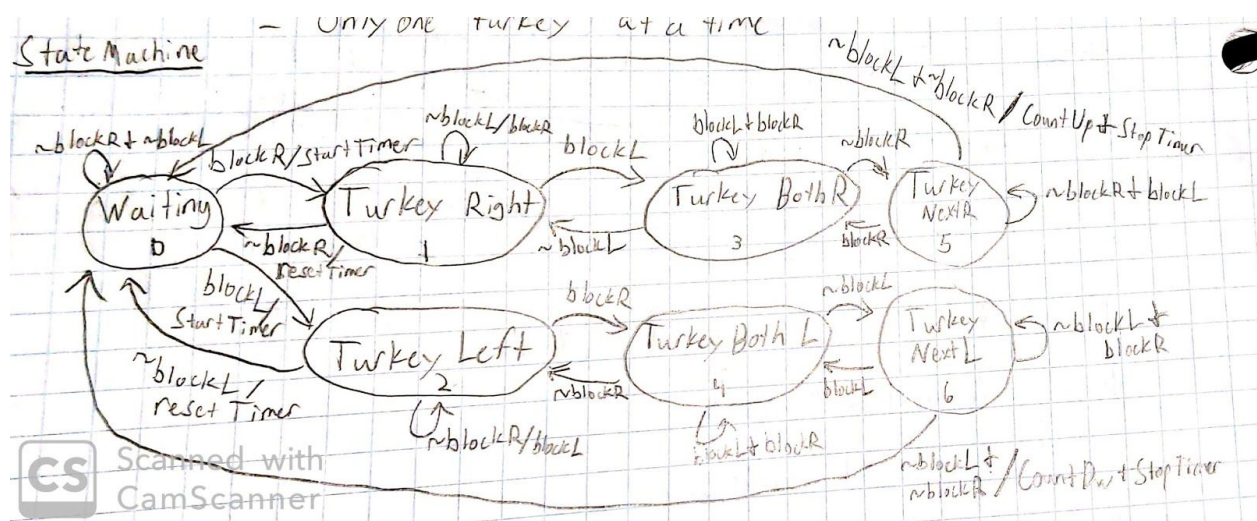 - Only one turkey at a time
State Machine
~blockL + ~blockR / CountUp + StopTimer
~blockR + ~blockL
blockR/StartTimer
~blockL/blockR
blockL
blockL + blockR
~blockR
Waiting
0
Turkey Right
1
Turkey BothR
3
Turkey
NextR
5
~blockR + blockL
~blockR/
resetTimer
~blockL
blockR
blockL/
StartTimer
blockR
~blockL
Turkey Left
2
Turkey Both L
4
Turkey
NextL
6
~blockL +
blockR
~blockL/
reset Timer
~blockR
blockL
~blockR/blockL
blockL + blockR
~blockL +
~blockR / Count + StopTimer
CS
Scanned with
CamScanner